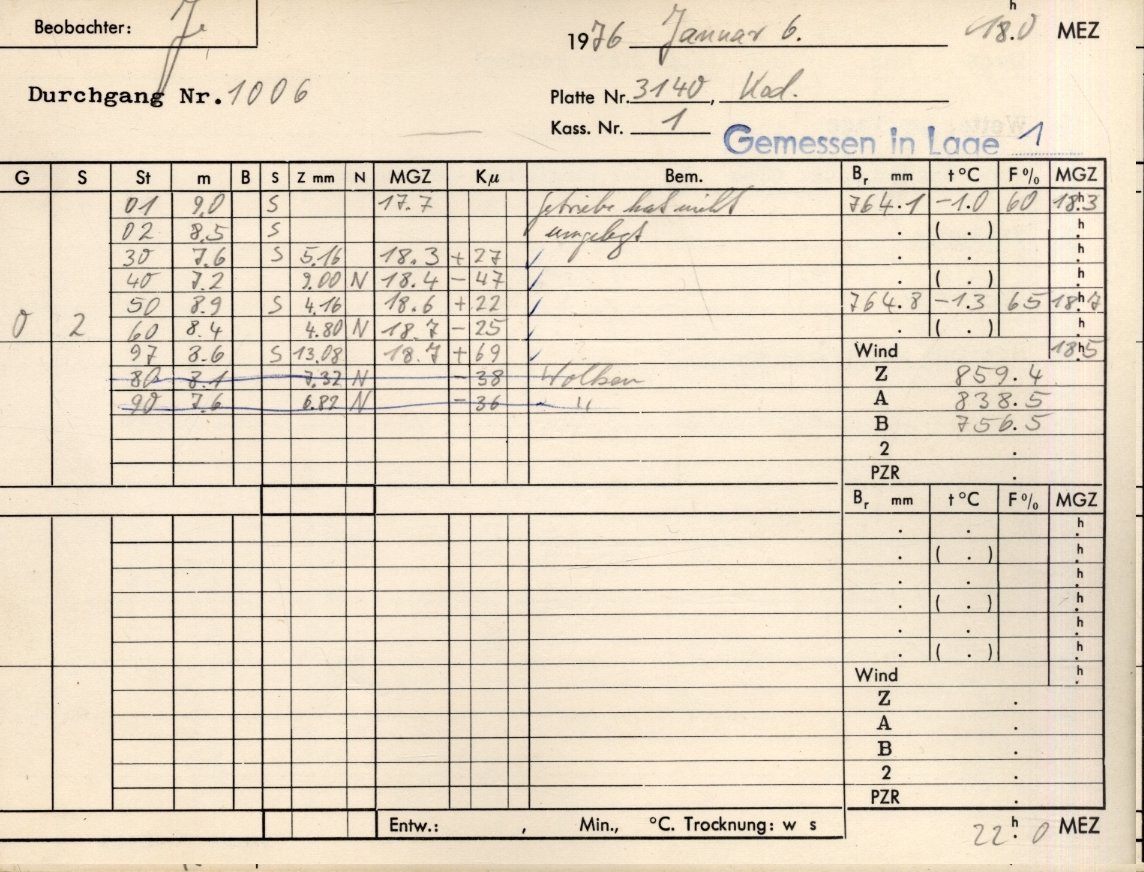 Beobachter: J.
1976 Januar 6. 18.h0 MEZ
Durchgang Nr. 1006
Platte Nr. 3140, Kod.
Kass. Nr. 1
Gemessen in Lage 1
G S St m B S Z mm N MGZ Kµ Bem. Br mm t °C F % MGZ
01 9.0 S 17.7 Getriebe hat nicht 764.1 -1.0 60 18.h3
02 8.5 S umgelegt . ( . ) h.
30 7.6 S 5.16 18.3 + 27 ✓ . . h.
40 7.2 9.00 N 18.4 - 47 ✓ . ( . ) h.
50 8.9 S 4.16 18.6 + 22 ✓ 764.8 -1.3 65 18.h7
0 2 60 8.4 4.80 N 18.7 - 25 ✓ . ( . ) h.
97 8.6 S 13.08 18.7 + 69 ✓ Wind 18.h5
80 8.1 7.32 N - 38 Wolken Z 859.4
90 7.6 6.82 N - 36 " A 838.5
B 756.5
2 .
PZR .
Br mm t °C F % MGZ
. . h.
. ( . ) h.
. . h.
. ( . ) h.
. . h.
. ( . ) h.
Wind h.
Z .
A .
B .
2 .
PZR .
Entw.: , Min., °C. Trocknung: w s
22.h0 MEZ